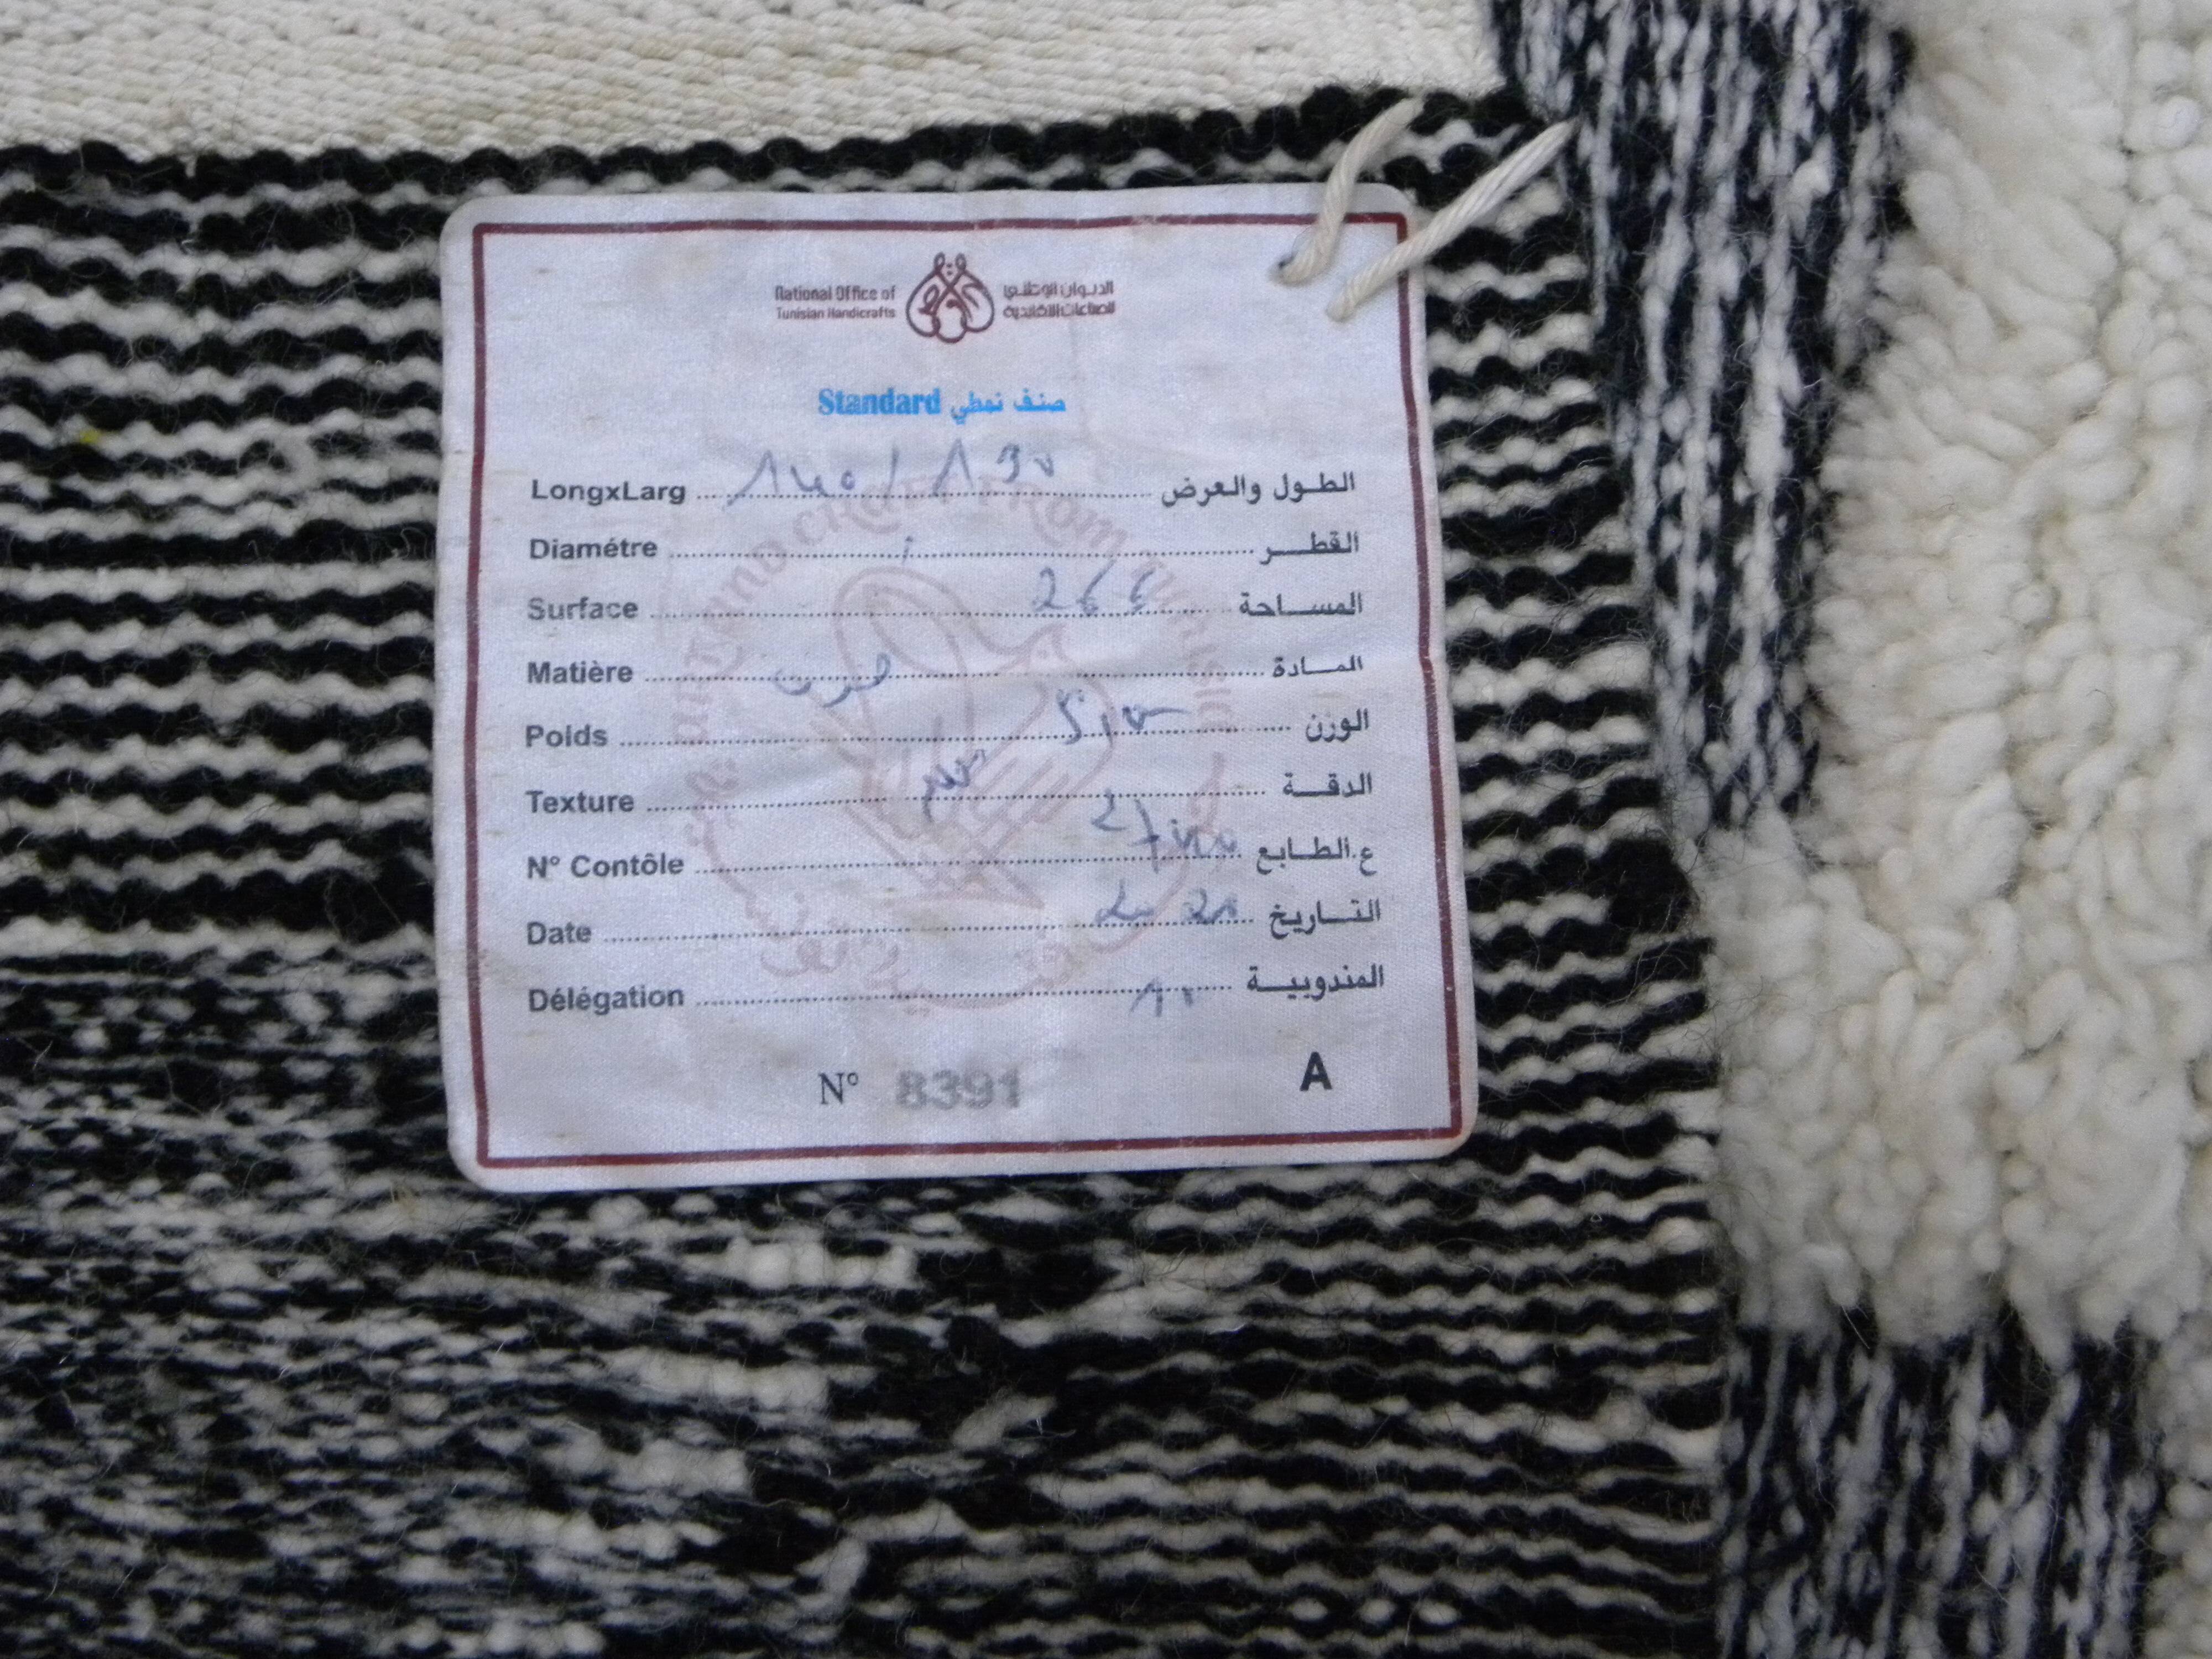 National Office of الديوان الوطني
Tunisian Handicrafts للصناعات التقليدية
Standard صنف نمطي
LongxLarg 140/190 الطول والعرض
Diamétre القطر
Surface 266 المساحة
Matière صوف المادة
Poids الوزن
Texture الدقة
N° Contôle ع.الطابع
Date التاريخ
Délégation 10 المندوبية
N° 8391 A